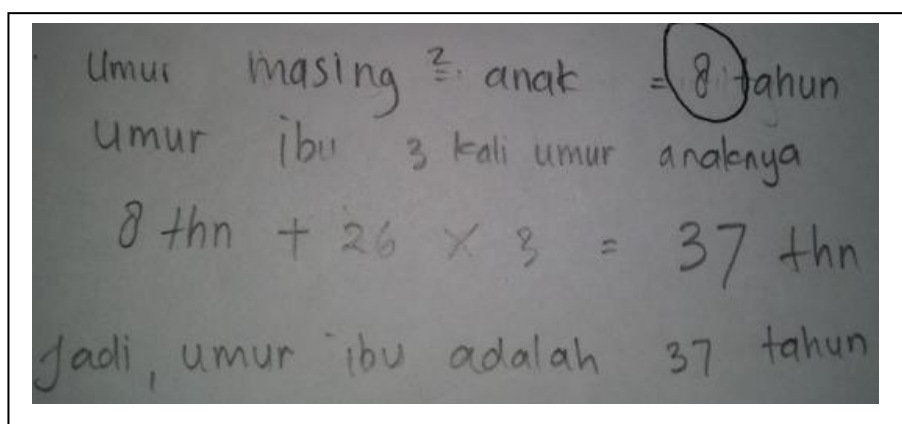 Umur masing ² anak = 8 tahun
umur ibu 3 kali umur anaknya
8 thn + 26 × 3 = 37 thn
Jadi, umur ibu adalah 37 tahun